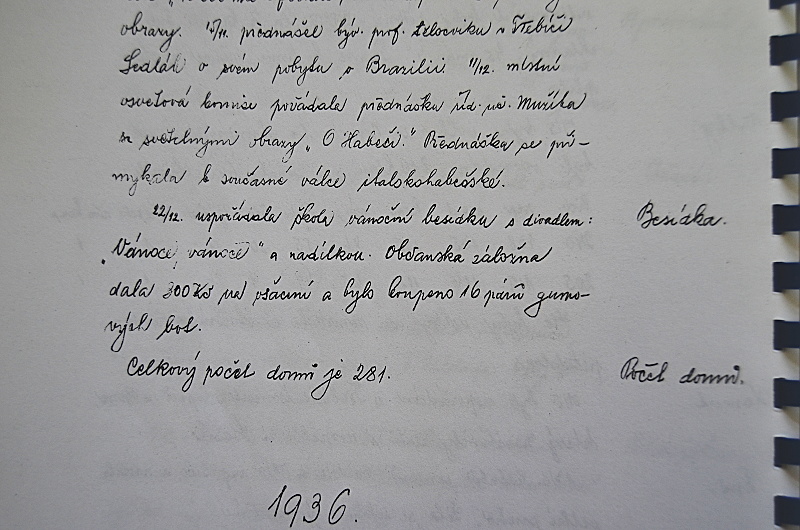 obrazy. 17/11. přednášel býv. prof. tělocviku v Třebíči
Sedlák o svém pobytu v Brazilii. 11/12. místní
osvětová komise pořádala přednášku říd. uč. Mužíka
se světelnými obrazy „O Habeši." Přednáška se při-
mykala k současné válce italskohabešské.
22/12. uspořádala škola vánoční besídku s divadlem: Besídka.
„Vánoce, vánoce" a nadílkou. Občanská záložna
dala 300 Kč na ošacení a bylo koupeno 16 párů gumo-
vých bot.
Celkový počet domů je 281. Počet domů.
1936.